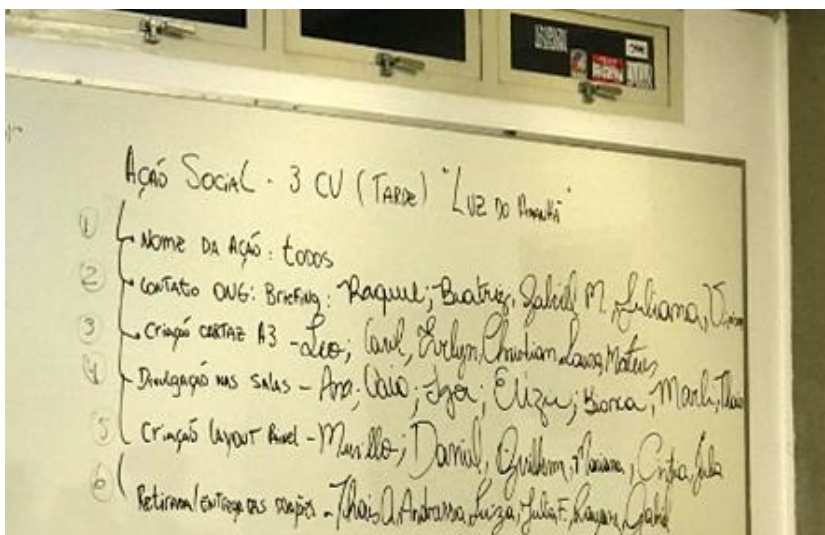 Ação Social - 3 CV (Tarde) "Luz do Amanhã"
1 Nome da Ação: todos
2 Contato ONG: Briefing: Raquel; Beatriz, Gabriel M. Juliana,
3 Criação cartaz A3 - Leo; Carol, Evelyn, Christian, Laura, Mateus
4 Divulgação nas salas - Ana; Caio; Igor; Bianca,
5 Criação layout Painel - Murillo; Daniel, Guilherme, Mariana, Julia
6 Retirada/entrega das doações - Thais Andressa, Luiza, Julia F. Gabriel